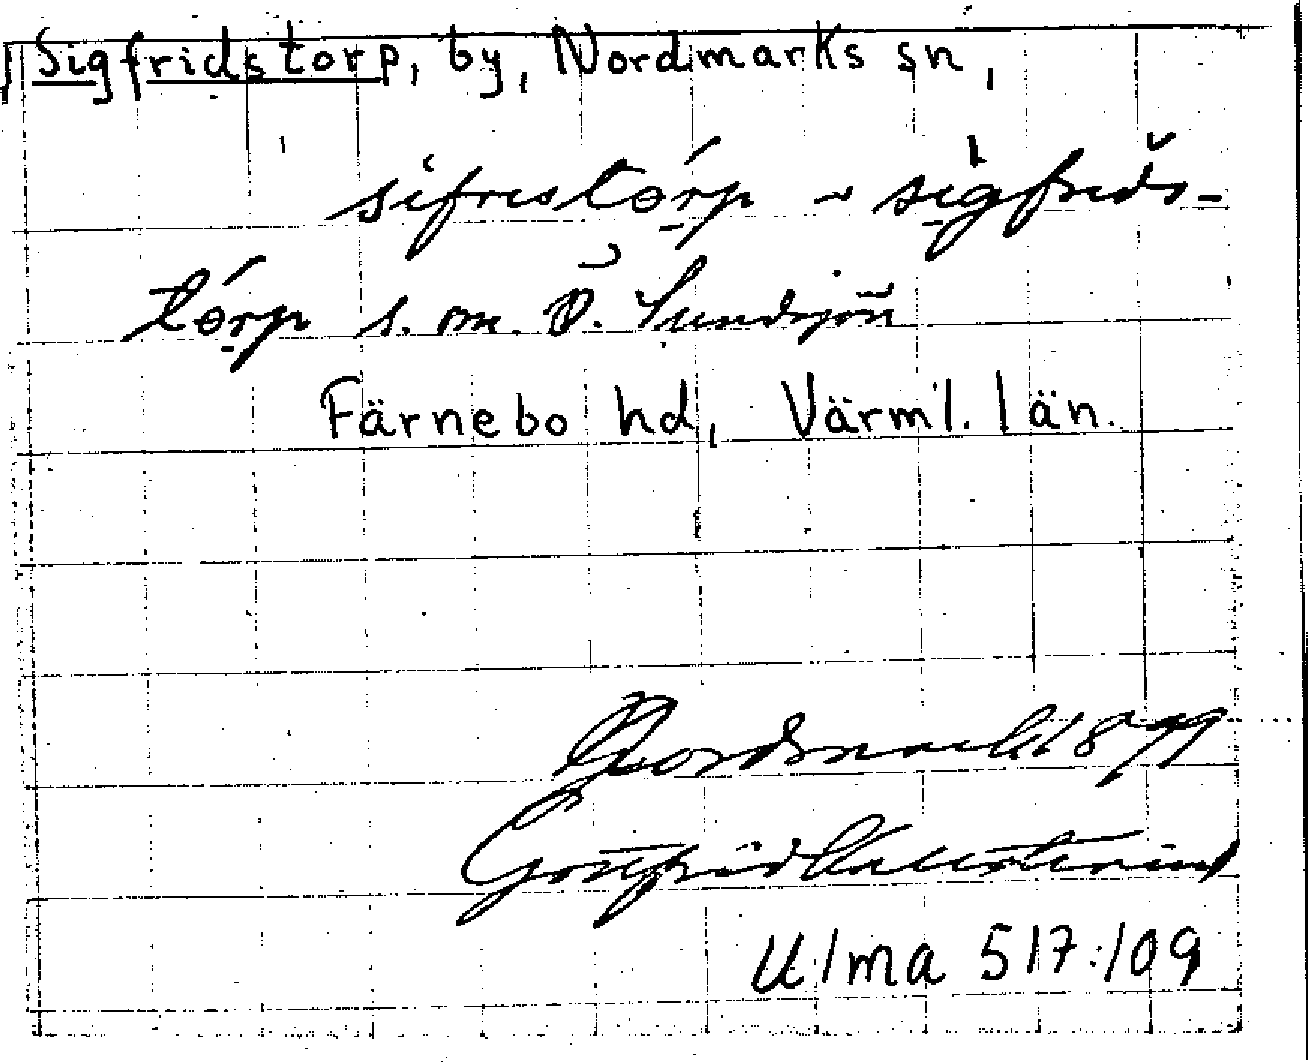 Sigfridstorp, by, Nordmarks sn,
sifrestórp ~ sigfrids-
tórp s. om. Ö. Sundsjön
Färnebo hd, Värml. län.
Nordmark 1899
Gottfrid Kallstenius
Ulma 517:109